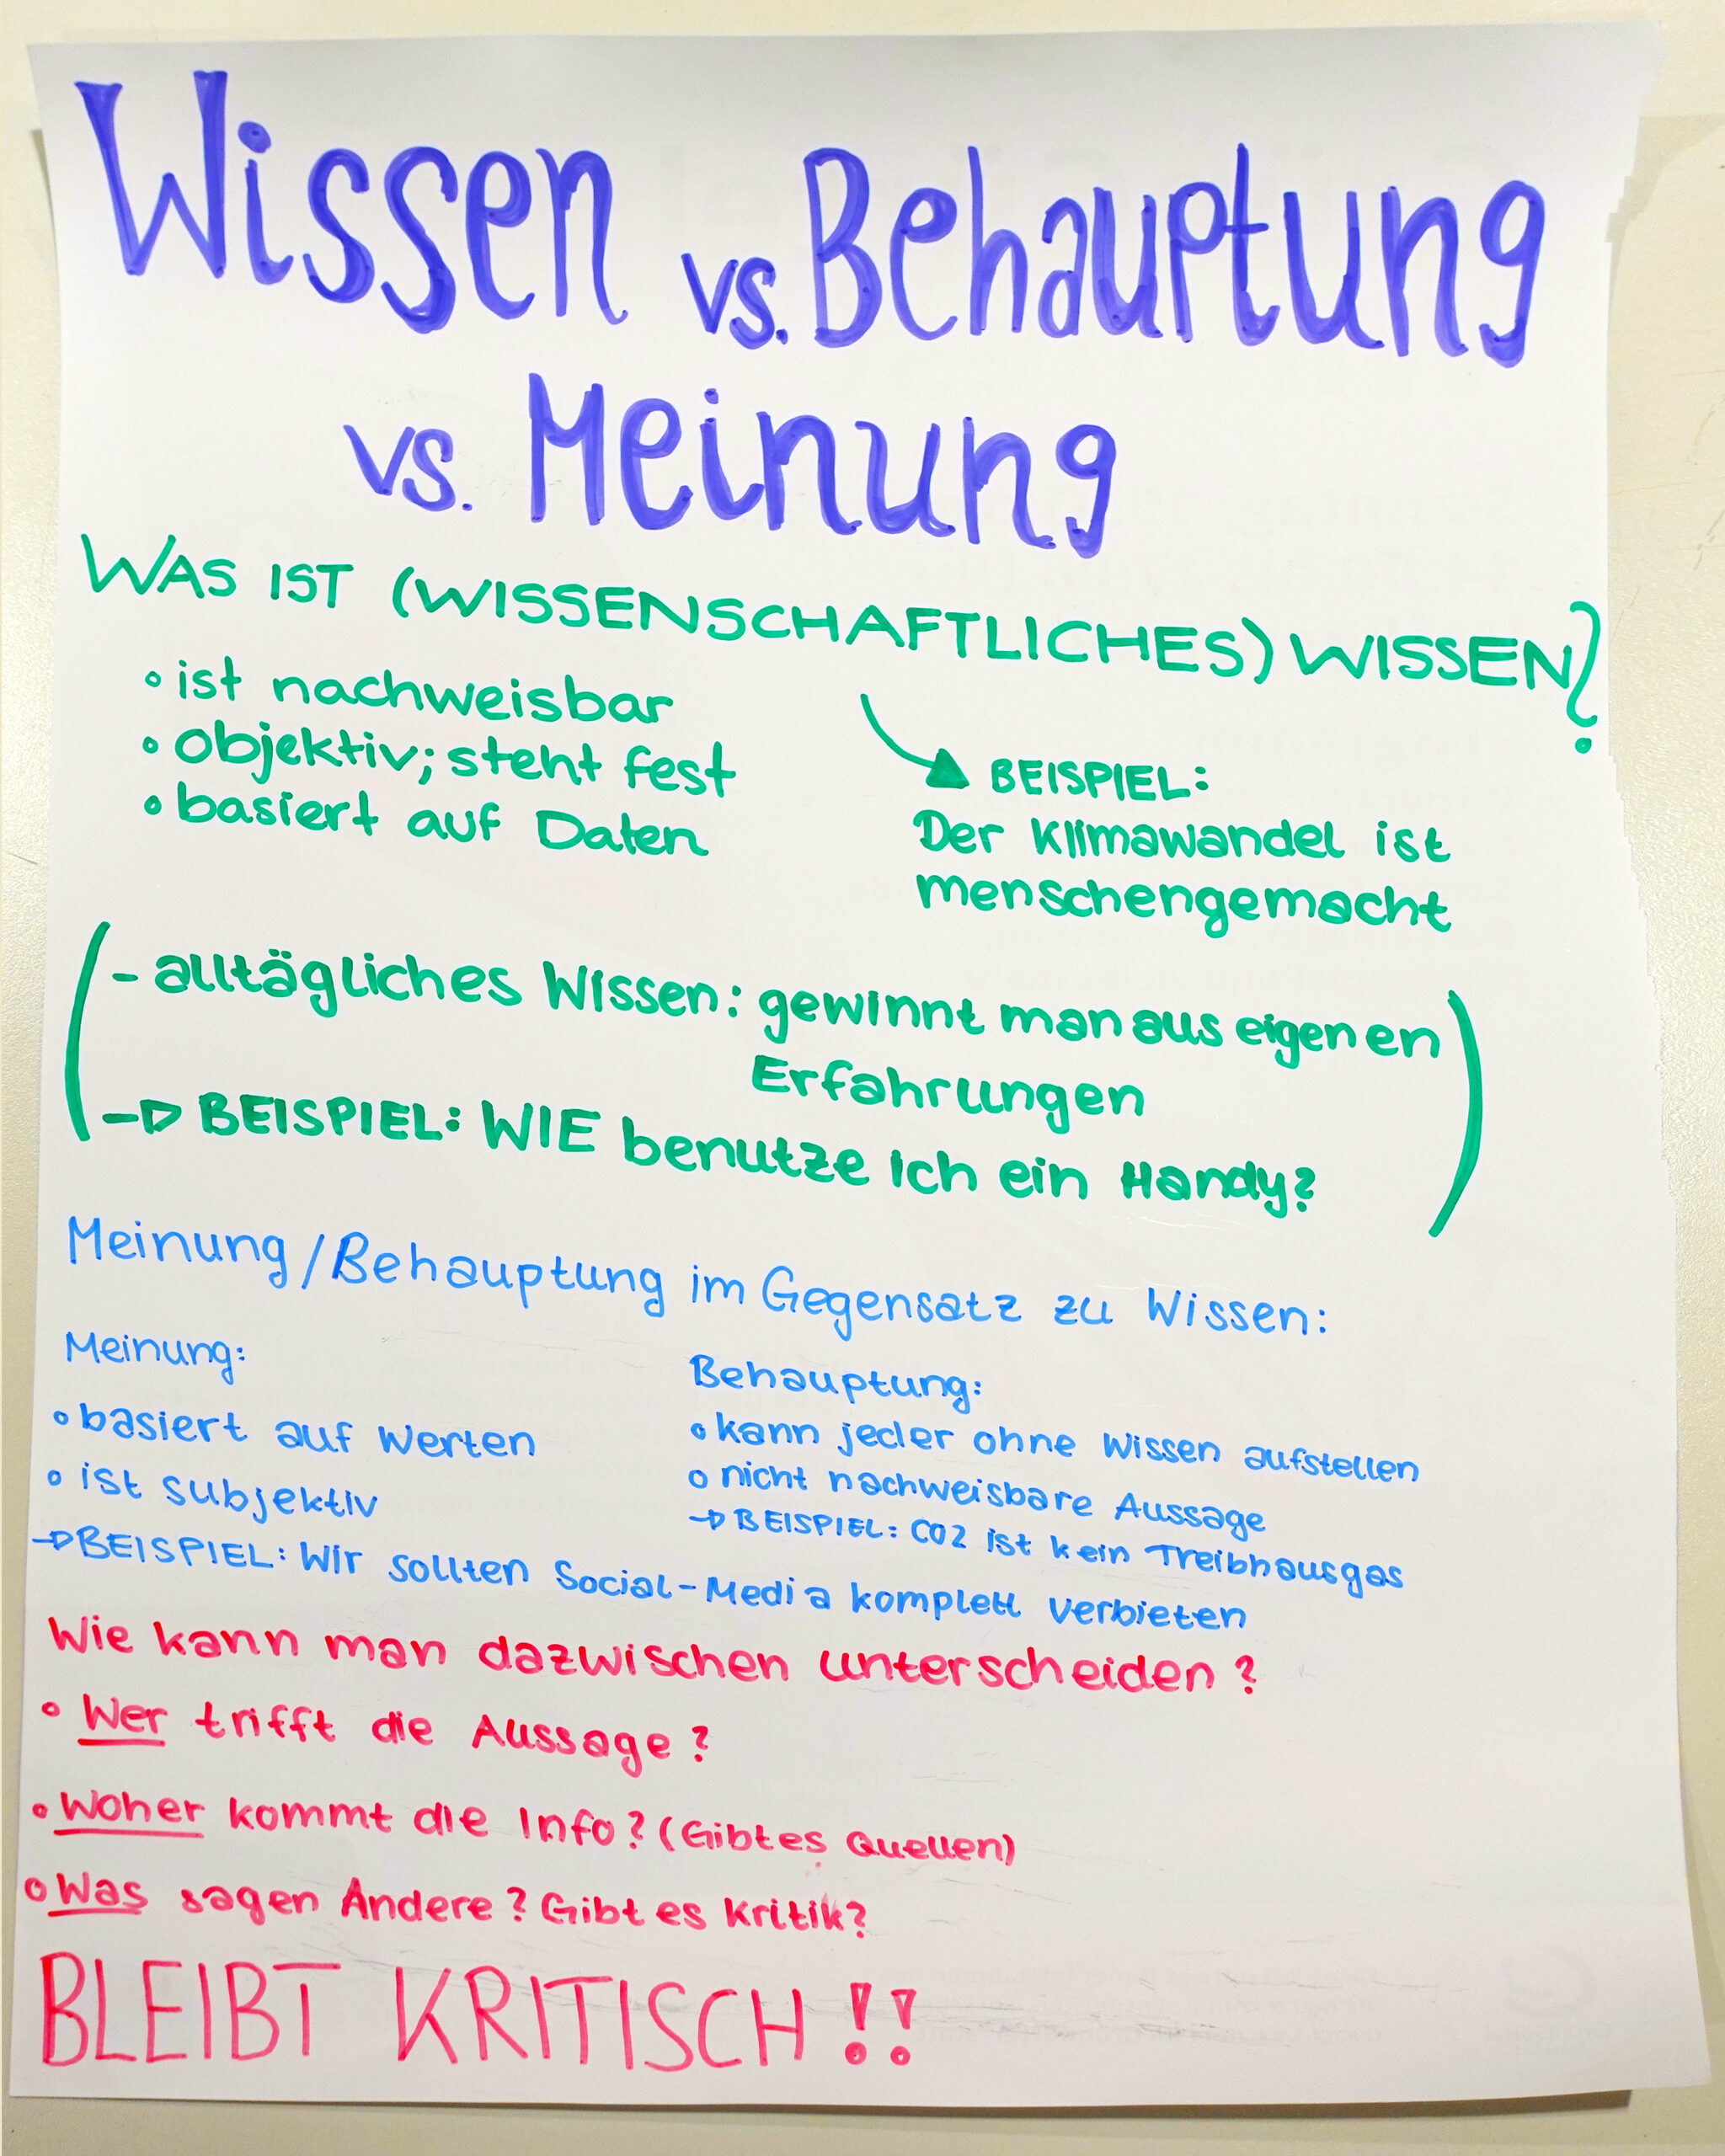 Wissen vs. Behauptung
vs. Meinung
WAS IST (WISSENSCHAFTLICHES) WISSEN?
• ist nachweisbar
• objektiv; steht fest
• basiert auf Daten
BEISPIEL:
Der Klimawandel ist
menschengemacht
- alltägliches Wissen: gewinnt man aus eigenen
Erfahrungen
→ BEISPIEL: WIE benutze ich ein Handy?
Meinung/Behauptung im Gegensatz zu Wissen:
Meinung:
• basiert auf Werten
• ist subjektiv
→ BEISPIEL: Wir sollten Social-Media komplett verbieten
Behauptung:
• kann jeder ohne Wissen aufstellen
• nicht nachweisbare Aussage
→ BEISPIEL: CO2 ist kein Treibhausgas
Wie kann man dazwischen unterscheiden?
• Wer trifft die Aussage?
• Woher kommt die Info? (Gibt es Quellen)
• Was sagen Andere? Gibt es Kritik?
BLEIBT KRITISCH!!